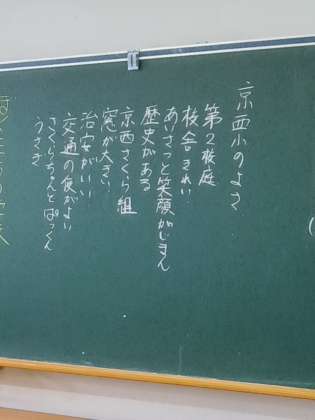 京西小のよさ
第2校庭
校舎きれい
あいさつと笑顔がじまん
歴史がある
京西さくら組
窓が大きい
治安がいい
交通の便がよい
さくらちゃんとぽっくん
うさぎ